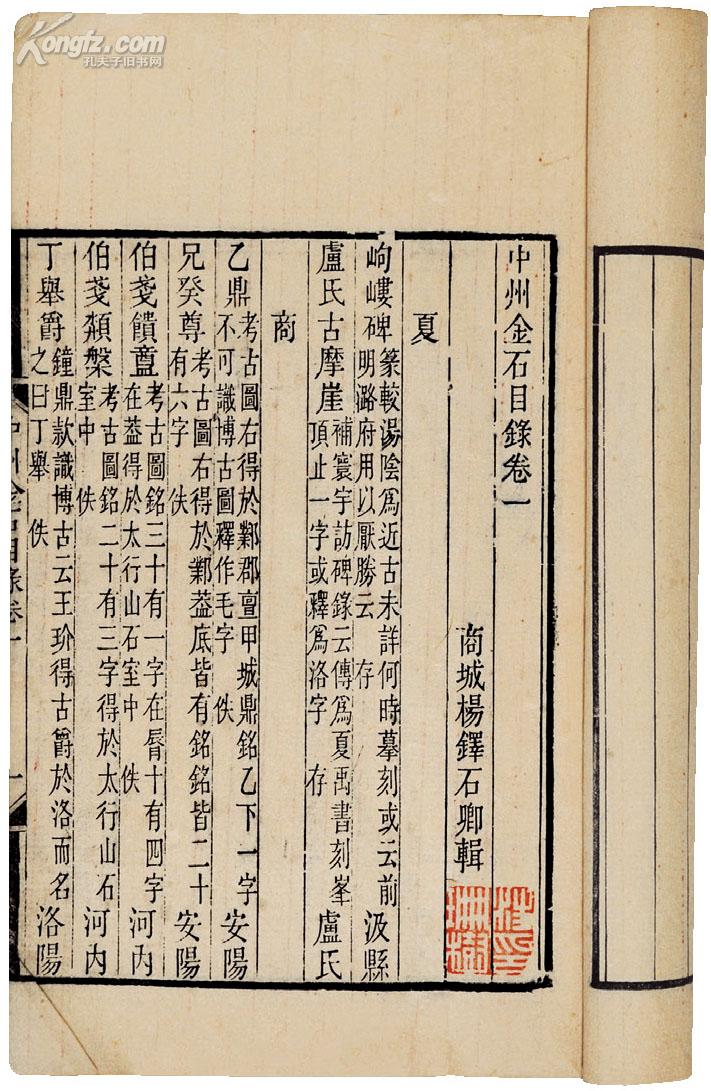 Kongfz.com
孔夫子旧书网
中州金石目錄卷一
商城楊鐸石卿輯
夏
岣嶁碑 篆較湯陰爲近古未詳何時摹刻或云前 汲縣
明潞府用以厭勝云 存
盧氏古摩崖 補寰宇訪碑錄云傳爲夏禹書刻峯 盧氏
頂止一字或釋爲洛字 存
商
乙鼎 考古圖右得於鄴郡亶甲城鼎銘乙下一字 安陽
不可識博古圖釋作毛字 佚
兄癸尊 考古圖右得於鄴葢底皆有銘銘皆二十 安陽
有六字 佚
伯戔饋盦 考古圖銘三十有一字在脣十有四字 河内
在葢得於太行山石室中 佚
伯戔頮槃 考古圖銘二十有三字得於太行山石 河内
室中 佚
丁舉爵 鐘鼎款識博古云王玠得古爵於洛而名 洛陽
之曰丁舉 佚
中州金石目錄卷一
一